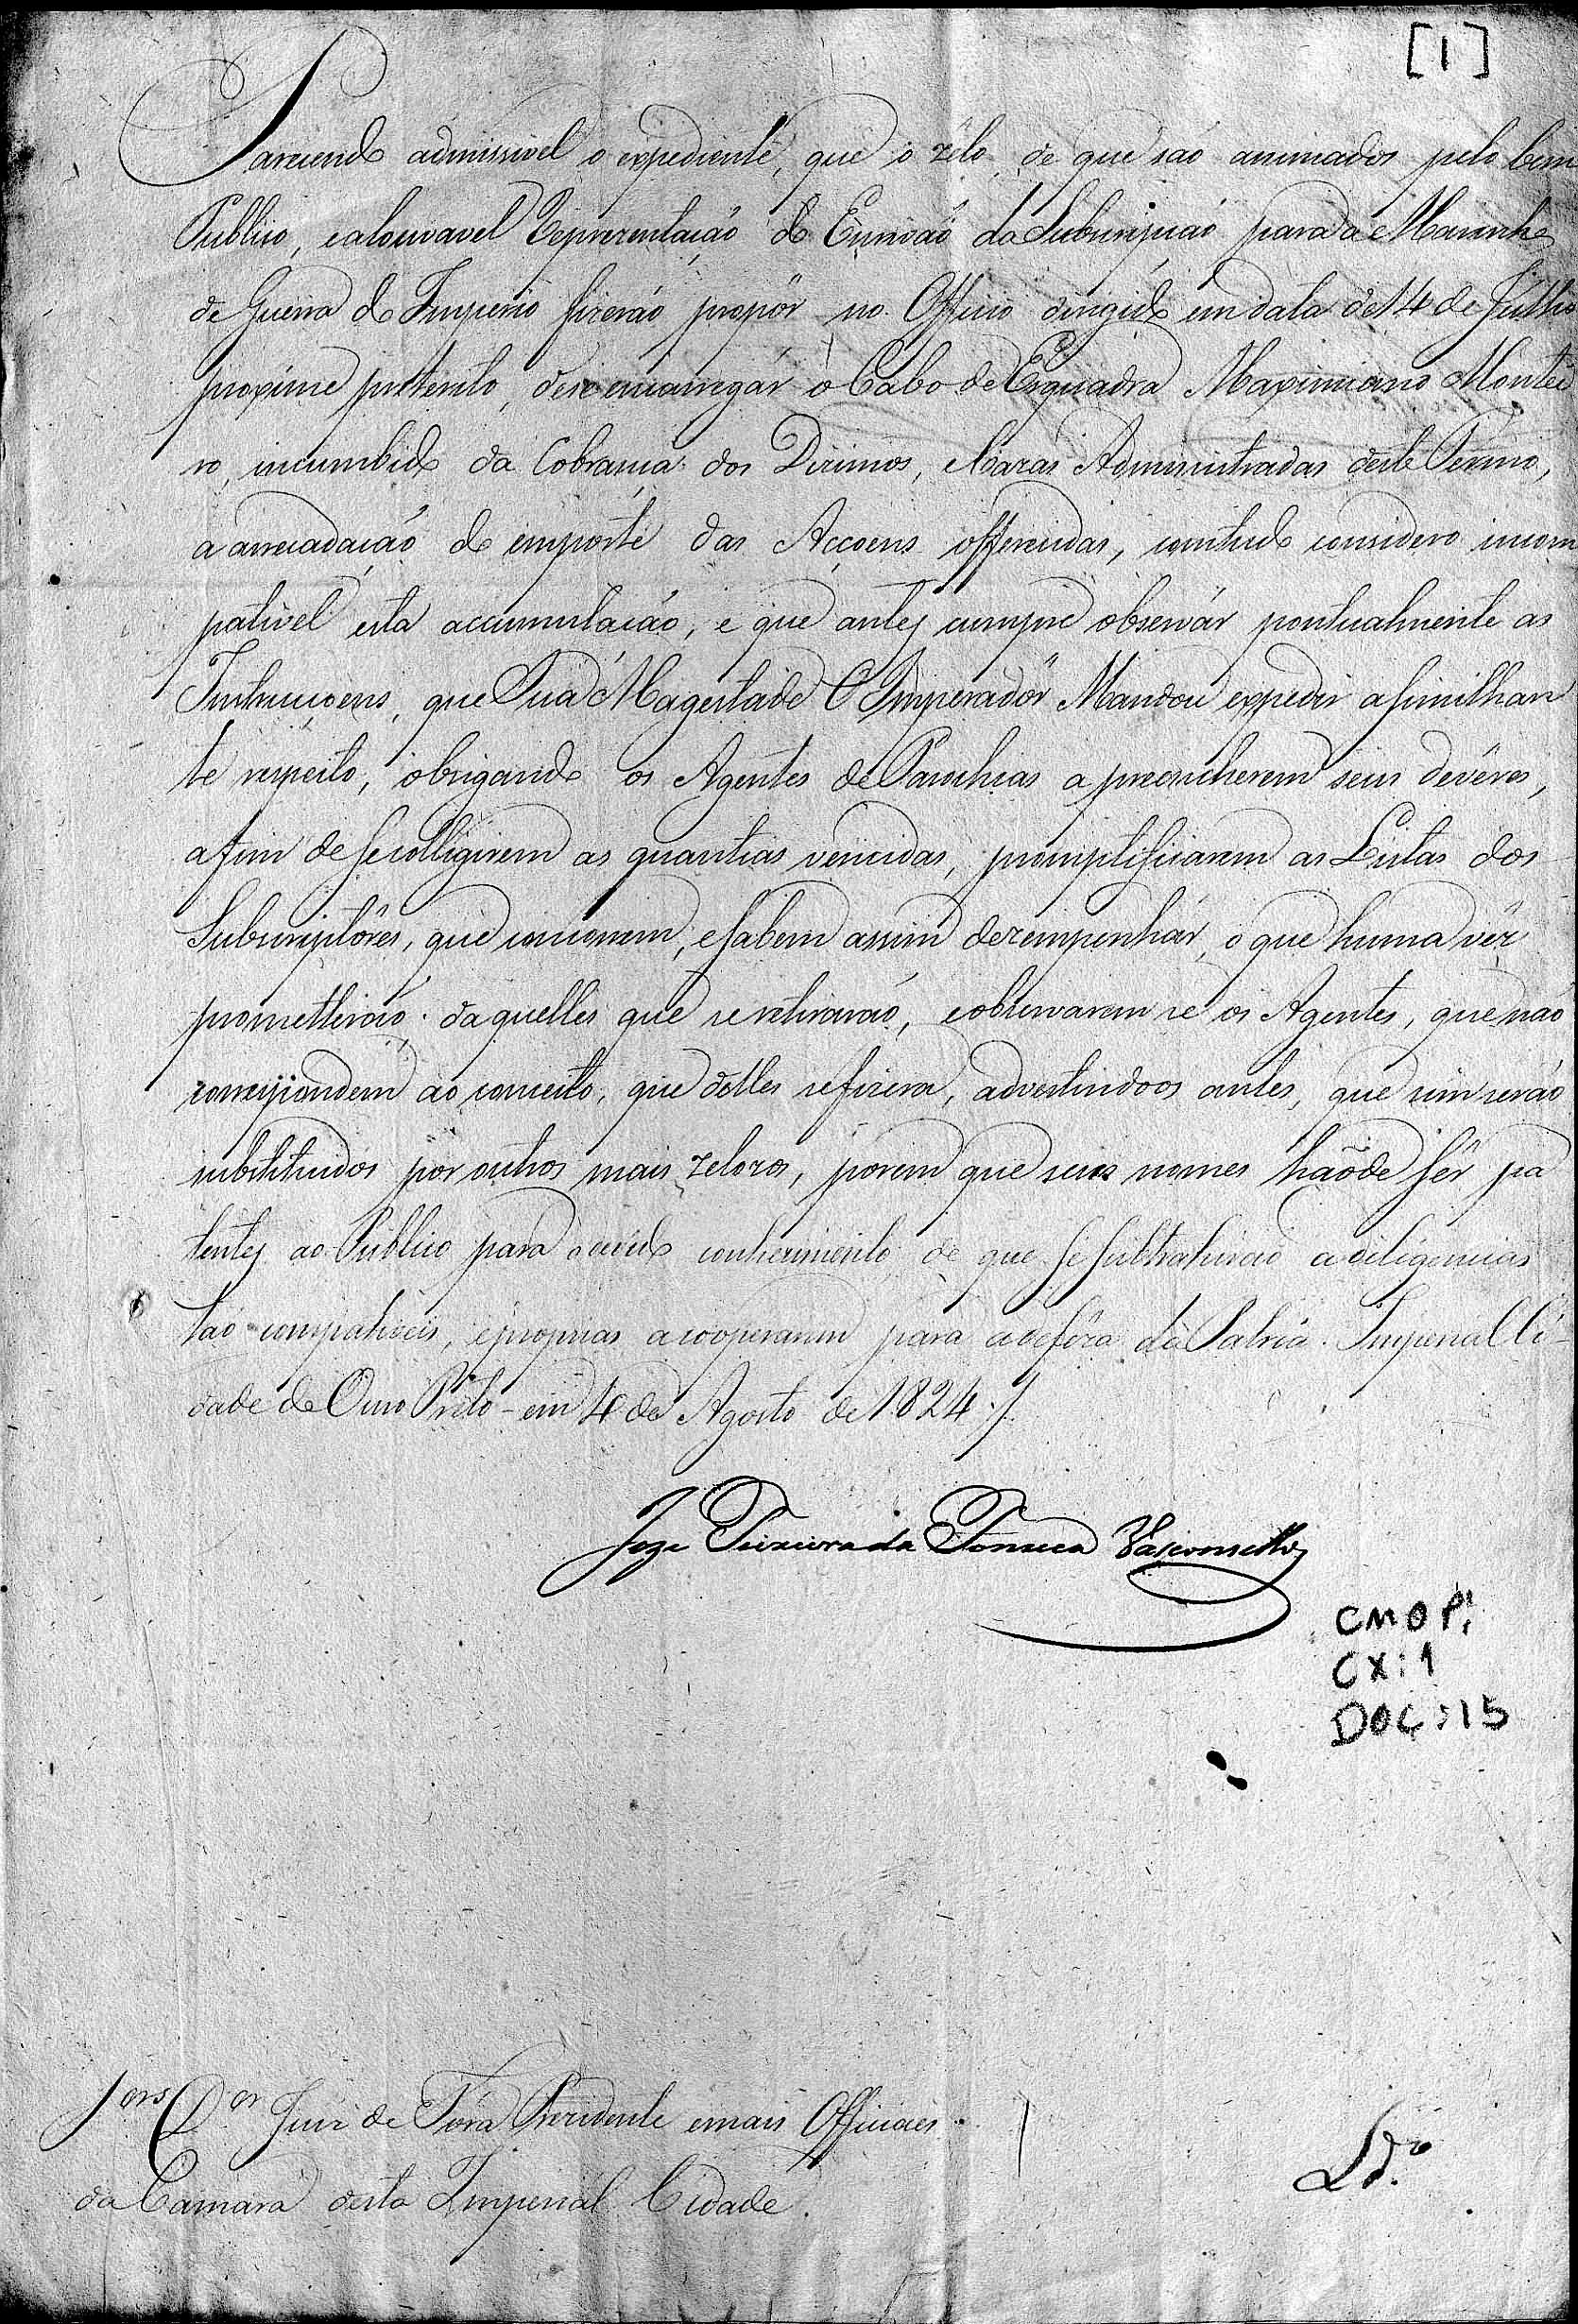 [1]
Parecendo admissivel o expediente, que o zêlo de que são animados pelo bem
Publico, e a louvavel Reprezentação do da Subscripção para a Marinha
de Guerra do Imperio fizerão propôr no Officio dirigido em data de 14 de Julho
proximo preterito, de encarregár o Cabo de Esquadra Maximiano Montei
ro, incumbido da Cobrança dos Dizimos, e Barcas Administradas deste Termo,
a arrecadação do importe das Acçoens offerecidas, comtudo considero incom
pativel esta accumulação, e que antes cumpre observár pontualmente as
Instrucçoens, que Sua Magestade O Imperadôr Mandou expedir a similhan
te respeito, obrigando os Agentes de Parochias a preencherem seus devêres,
a fim de se colligirem as quantias vencidas, promptificarem as Listas dos
Subscriptôres, que concorrem, e sabem assim dezempenhár, o que huma vêz
prometterão; daquelles que se retirarão, e observarem se os Agentes, que não
correspondem ao conceito, que delles se fizera, advertindo os antes, que sim serão
substituidos por outros mais zelozos, porem que seus nomes hão de sêr pa
tentes ao Publico para o devido conhecimento de que se subtrahirão a diligencias
tão compativeis, e proprias a cooperarem para a defêza da Patria. Imperial Ci-
dade de Ouro Preto em 4 de Agosto de 1824.
Joze Teixeira da Fonseca Vasconcellos
CMOP:
CX: 1
DOC: 15
Snrs. Dor Juiz de Fóra Prezidente e mais Officiaes
da Camara desta Imperial Cidade.